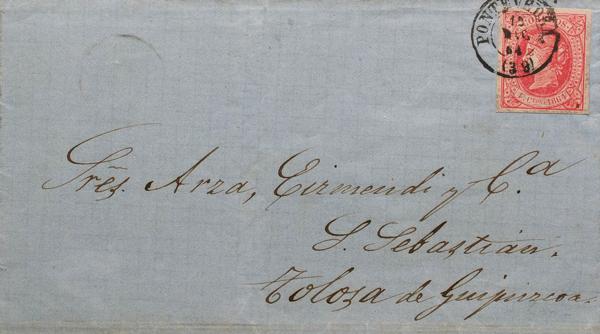 PONTEVEDRA
(39)
Sres. Arza, Eizmendi y C.a
S. Sebastián.
Tolosa de Guipuzcoa.